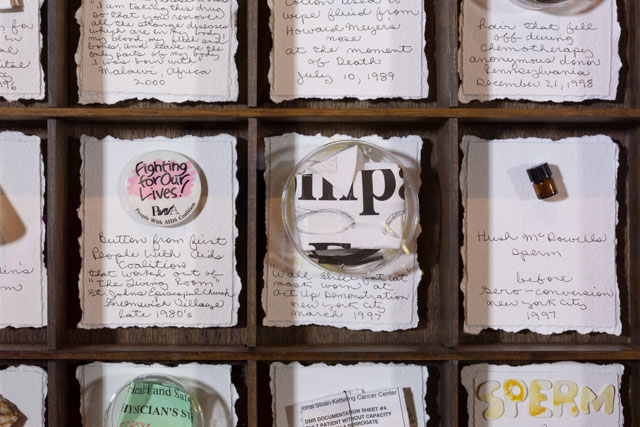 I am taking this drug
so that you remove
all the strange diseases
which are on my body,
my blood, my flesh and
bones, and leave me the
only parts of my body
I was born with
Malawi, Africa
2000
cotton used to
wipe fluid from
Howard Meyer's
nose
at the moment
of Death
July 10, 1989
hair that fell
off during
chemotherapy
anonymous donor
Pennsylvania
December 21, 1998
Fighting
for Our
Lives!
PWA
People With AIDS Coalition
Button from first
People With Aids
Coalition
that worked out of
"the Living Room"
St. Johns Episcopal Church
Greenwich Village
late 1980's
mpa
"Wall Street Fat Cat"
mask worn at
Act Up Demonstration
new york city
March 1997
Hush McDowells
sperm
before
sero-conversion
new york city
1997
Health and Safe
HYSICIAN'S S
orial Sloan-Kettering Cancer Center
DNR DOCUMENTATION SHEET #4
LT PATIENT WITHOUT CAPACITY
RROGATE
SPERM